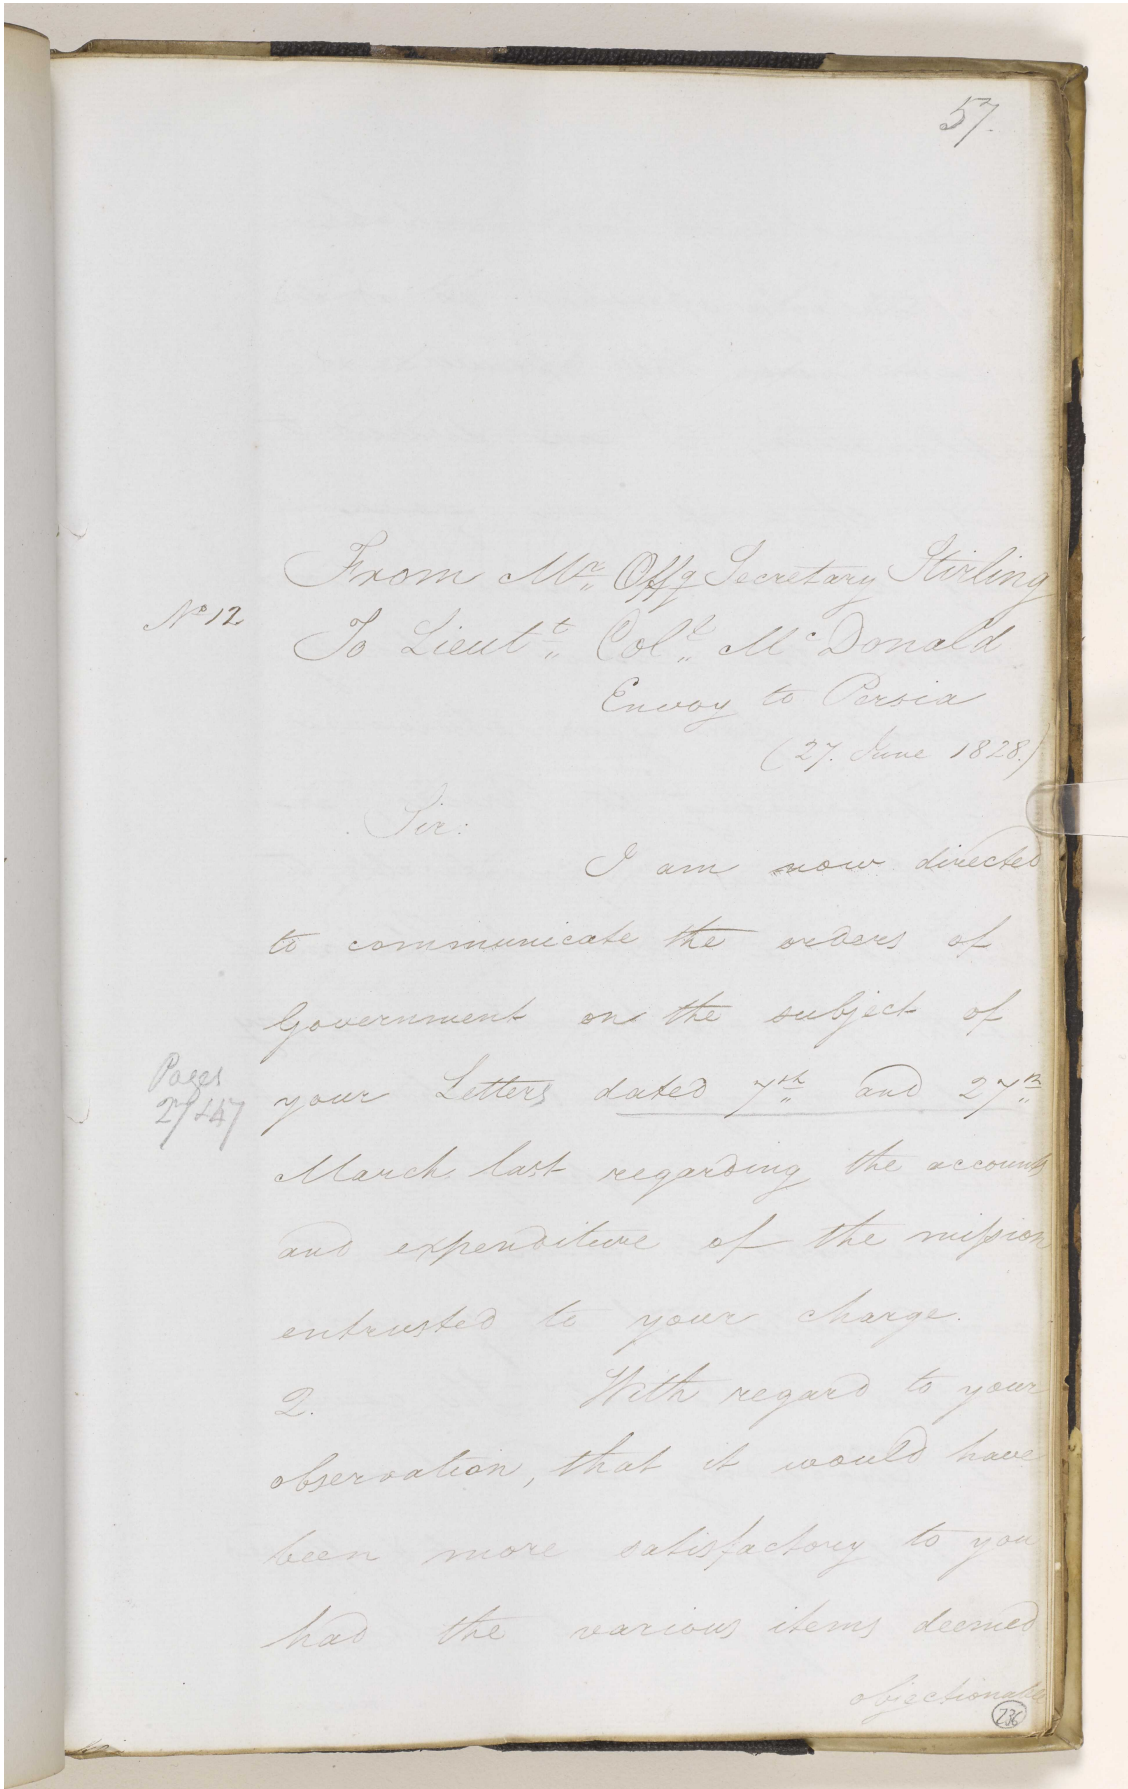 57.
From Mr. Offg Secretary Stirling
No 12
To Lieutt. Coll. McDonald
Envoy to Persia
(27. June 1828.)
Sir:
I am now directed
to communicate the orders of
Government on the subject of
Pages
27 & 47
your Letters dated 7th and 27th
March last regarding the accounts
and expenditure of the mission
entrusted to your charge.
2. With regard to your
observation, that it would have
been more satisfactory to you
had the various items deemed
objectionable
236